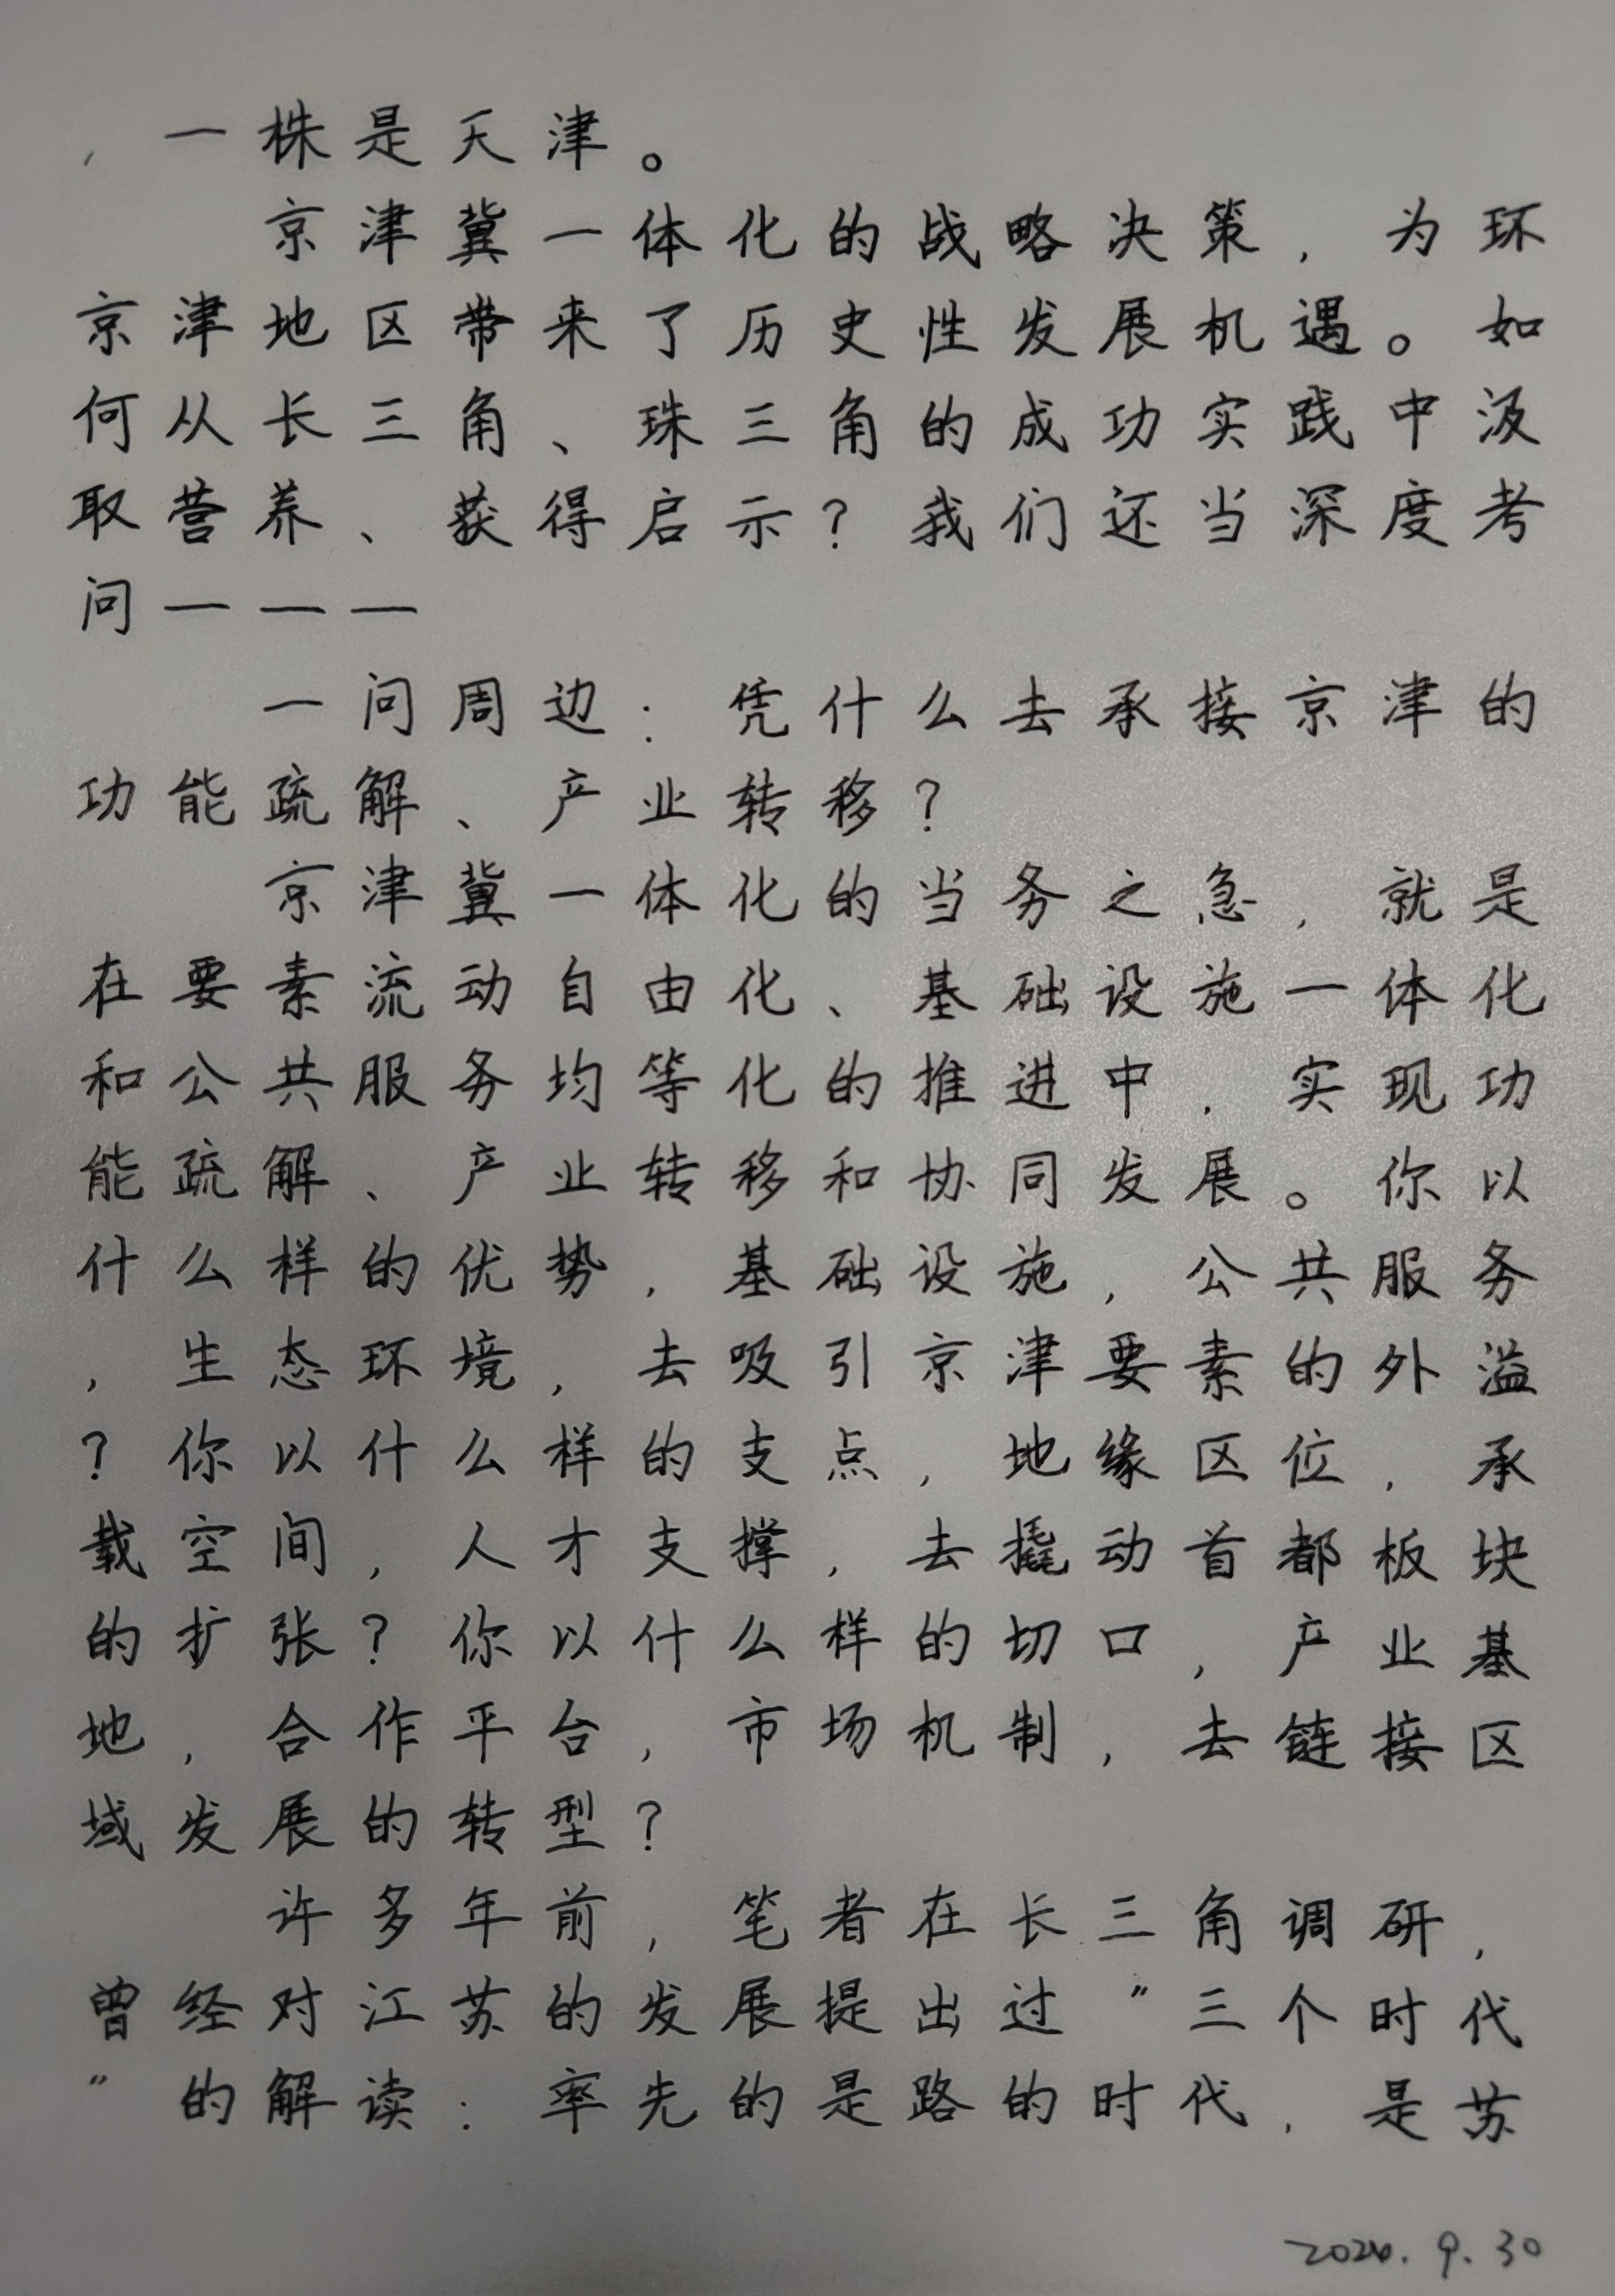 ，一株是天津。
京津冀一体化的战略决策，为环
京津地区带来了历史性发展机遇。如
何从长三角、珠三角的成功实践中汲
取营养、获得启示？我们还当深度考
问———
一问周边：凭什么去承接京津的
功能疏解、产业转移？
京津冀一体化的当务之急，就是
在要素流动自由化、基础设施一体化
和公共服务均等化的推进中，实现功
能疏解、产业转移和协同发展。你以
什么样的优势，基础设施，公共服务
，生态环境，去吸引京津要素的外溢
？你以什么样的支点，地缘区位，承
载空间，人才支撑，去撬动首都板块
的扩张？你以什么样的切口，产业基
地，合作平台，市场机制，去链接区
域发展的转型？
许多年前，笔者在长三角调研，
曾经对江苏的发展提出过"三个时代
"的解读：率先的是路的时代，是苏
2024.9.30